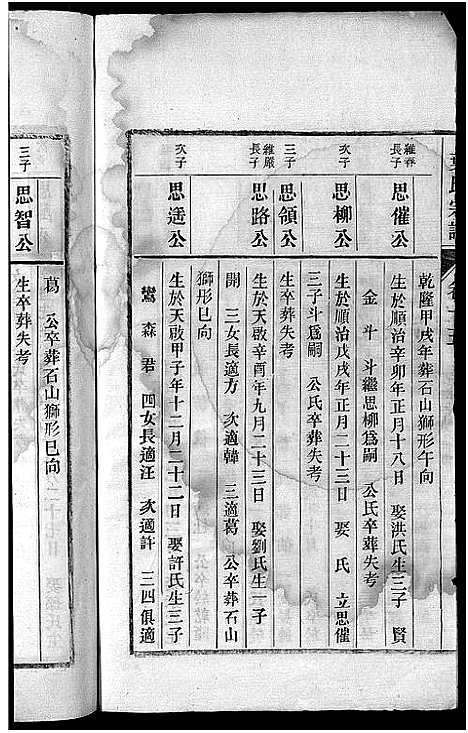 乾隆甲戌年葬石山獅形午向
維春
長子
思催公
生於順治辛卯年正月十八日 娶洪氏生三子 賢
金 斗 斗繼思柳爲嗣 公氏卒葬失考
次子
思柳公
生於順治戊戌年正月二十三日 娶 氏 立思催
三子斗爲嗣 公氏卒葬失考
三子
思領公
生卒葬失考
維嚴
長子
思路公
生於天啟辛酉年九月二十三日 娶劉氏生一子
開 三女長適方 次適韓 三適葛 公卒葬石山
獅形巳向
次子
思遙公
生於天啟甲子年十二月二十二日 娶許氏生三子
鸞 森 君 四女長適汪 次適許 三四俱適
葛 公卒葬石山獅形巳向
三子
思智公
生卒葬失考